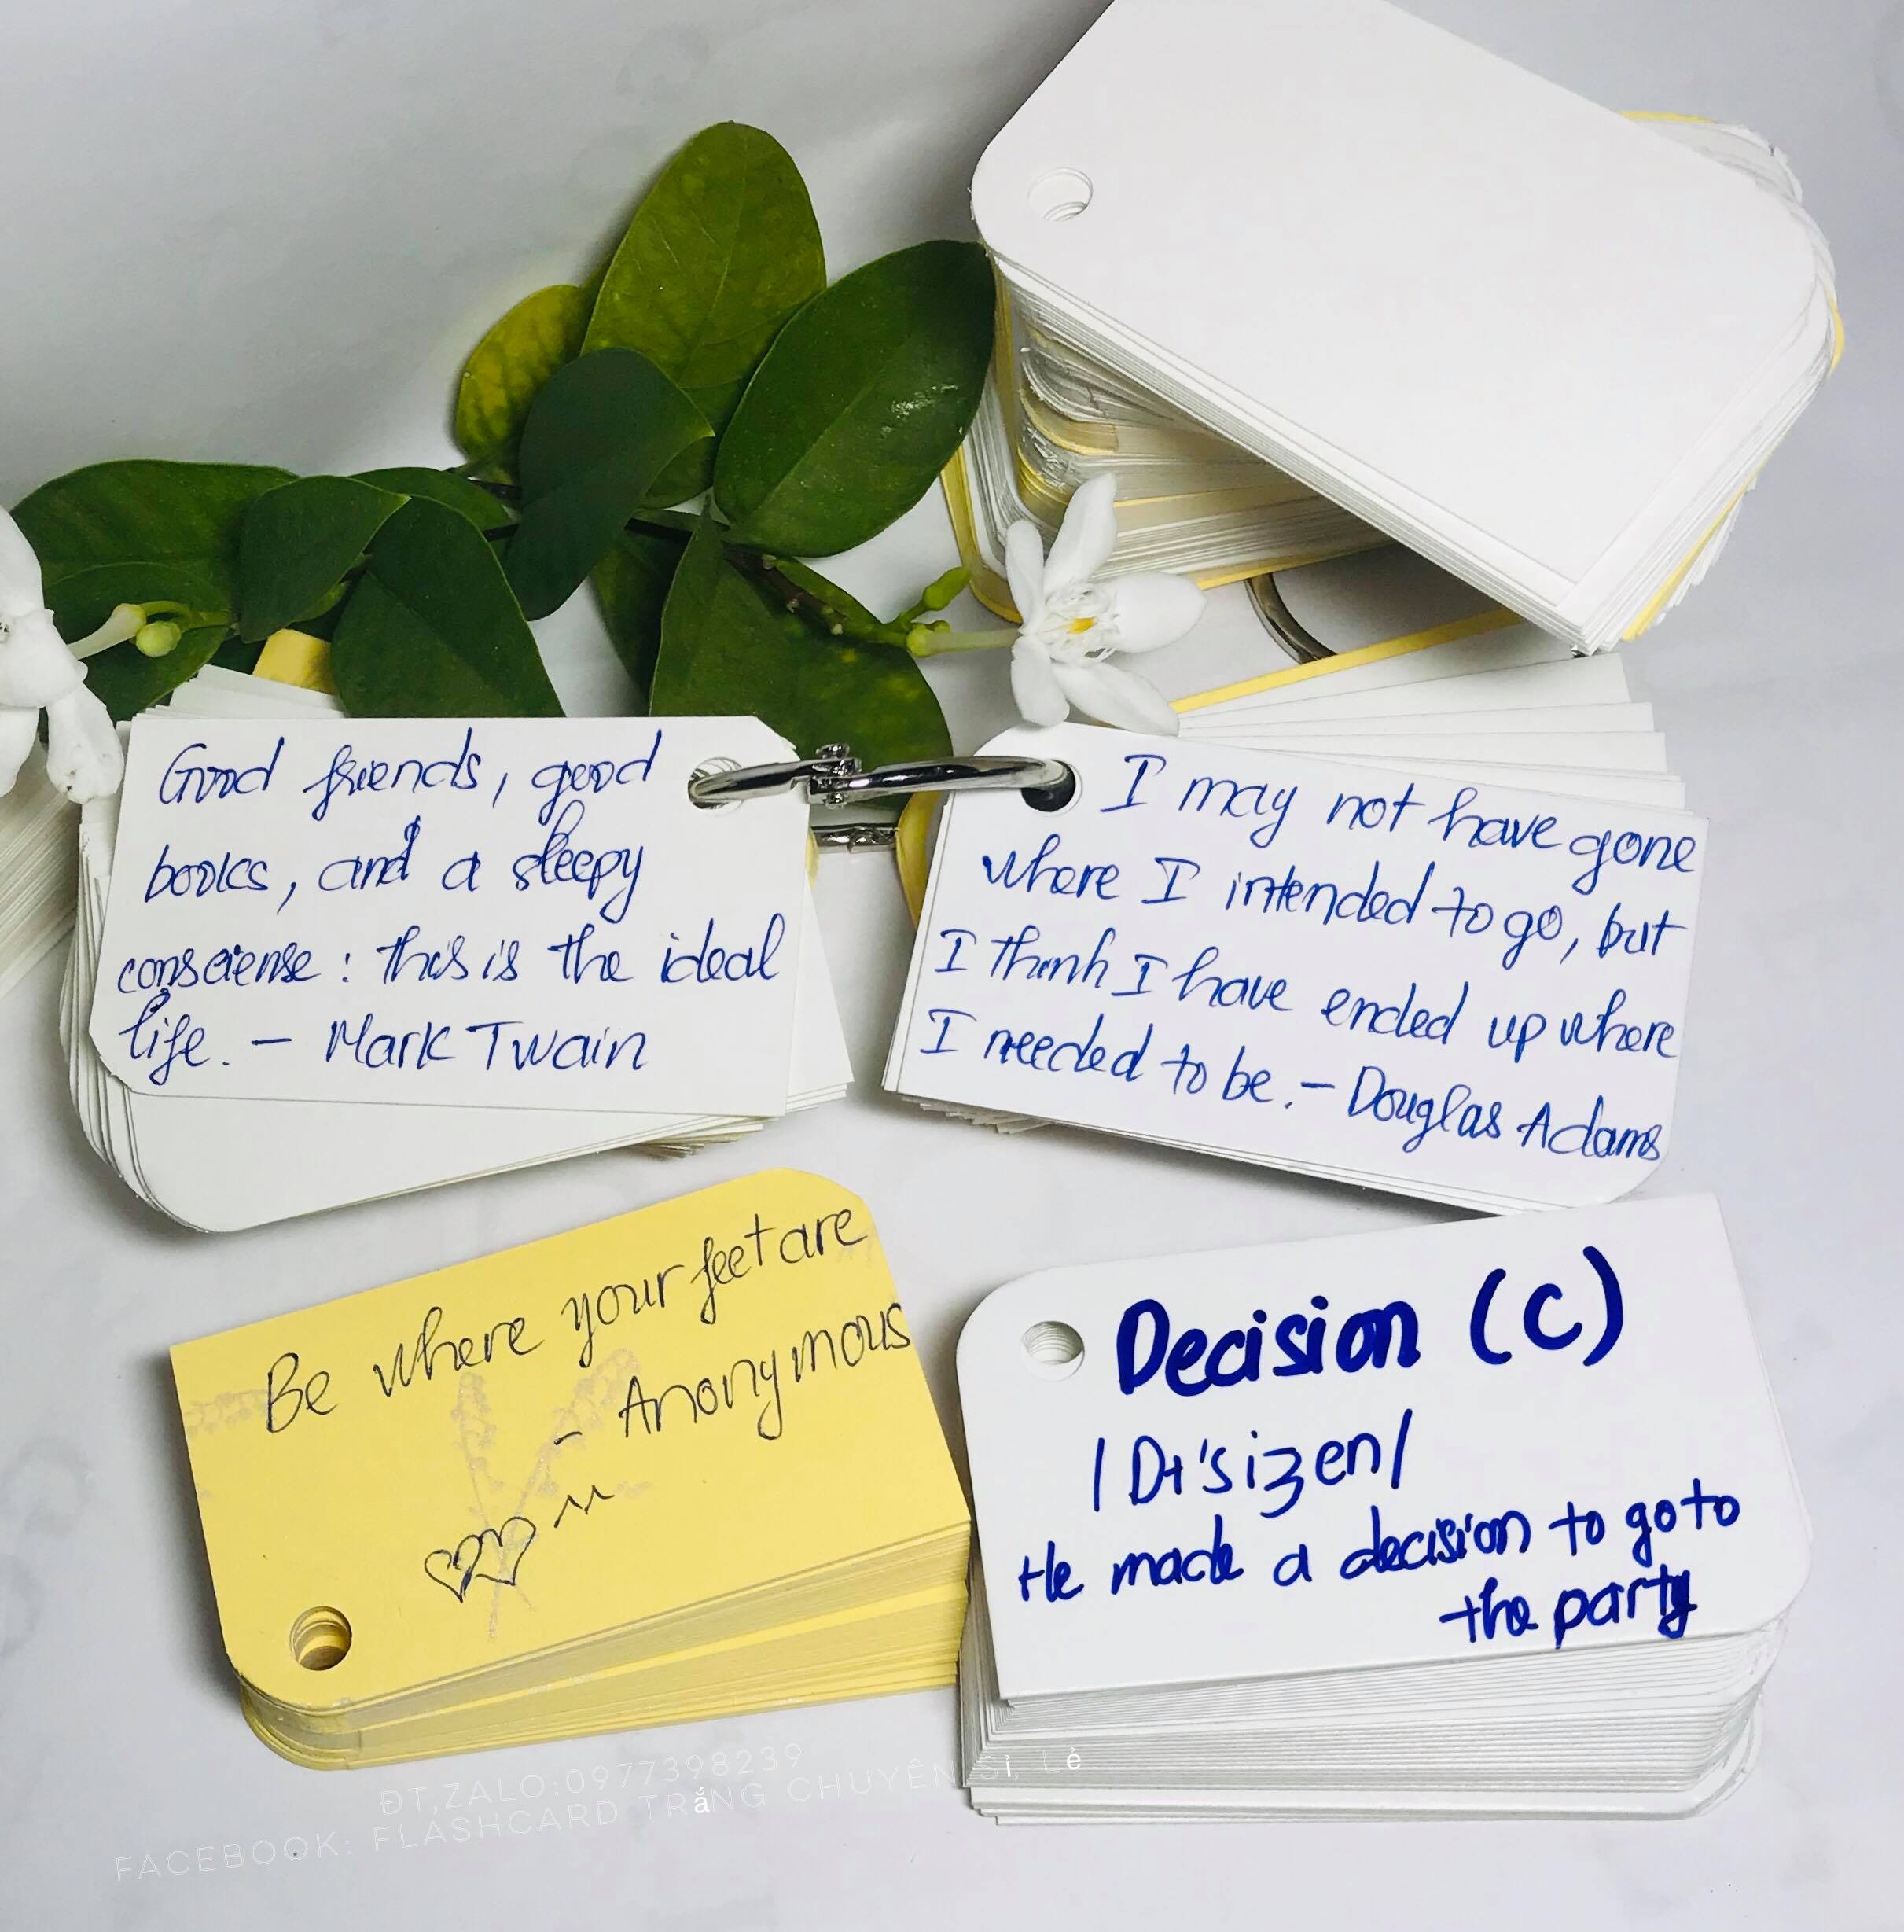 Good friends, good
books, and a sleepy
consciense : this is the ideal
life. – Mark Twain
I may not have gone
where I intended to go, but
I think I have ended up where
I needed to be. – Douglas Adams
Be where your feet are
- Anonymous
Decision (C)
/Dɪ'siʒen/
He made a decision to go to
the party
ĐT,ZALO:0977398239
FACEBOOK: FLASHCARD TRẮNG CHUYÊN SỈ, LẺ